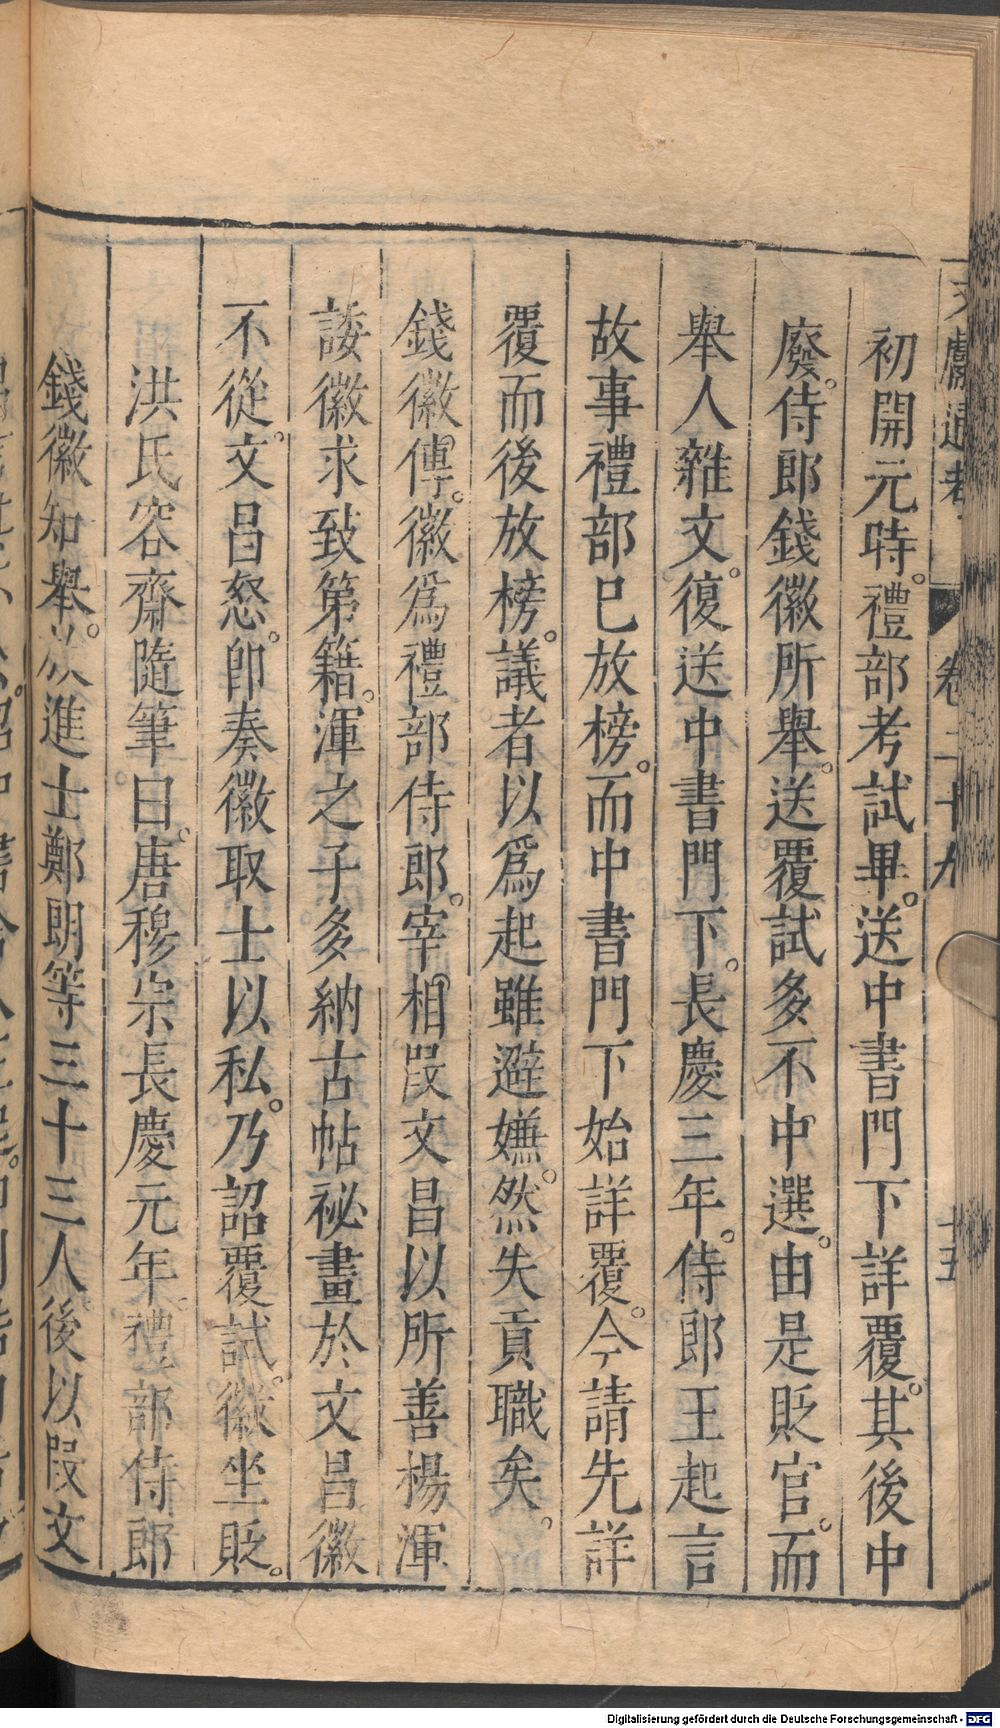 文獻通考 卷二十九 十五
初開元時。禮部考試畢。送中書門下詳覆。其後中
廢。侍郎錢徽所舉。送覆試多不中選。由是貶官。而
舉人雜文。復送中書門下。長慶三年。侍郎王起言
故事禮部已放榜。而中書門下始詳覆。今請先詳
覆而後放榜。議者以爲起雖避嫌。然失貢職矣。
錢徽傳。徽爲禮部侍郎。宰相段文昌以所善楊渾
諉徽求致第籍。渾之子多納古帖祕畫於文昌徽
不從。文昌怒。卽奏徽取士以私。乃詔覆試。徽坐貶。
洪氏容齋隨筆曰。唐穆宗長慶元年。禮部侍郎
錢徽知舉。放進士鄭朗等三十三人後以段文
Digitalisierung gefördert durch die Deutsche Forschungsgemeinschaft - DFG